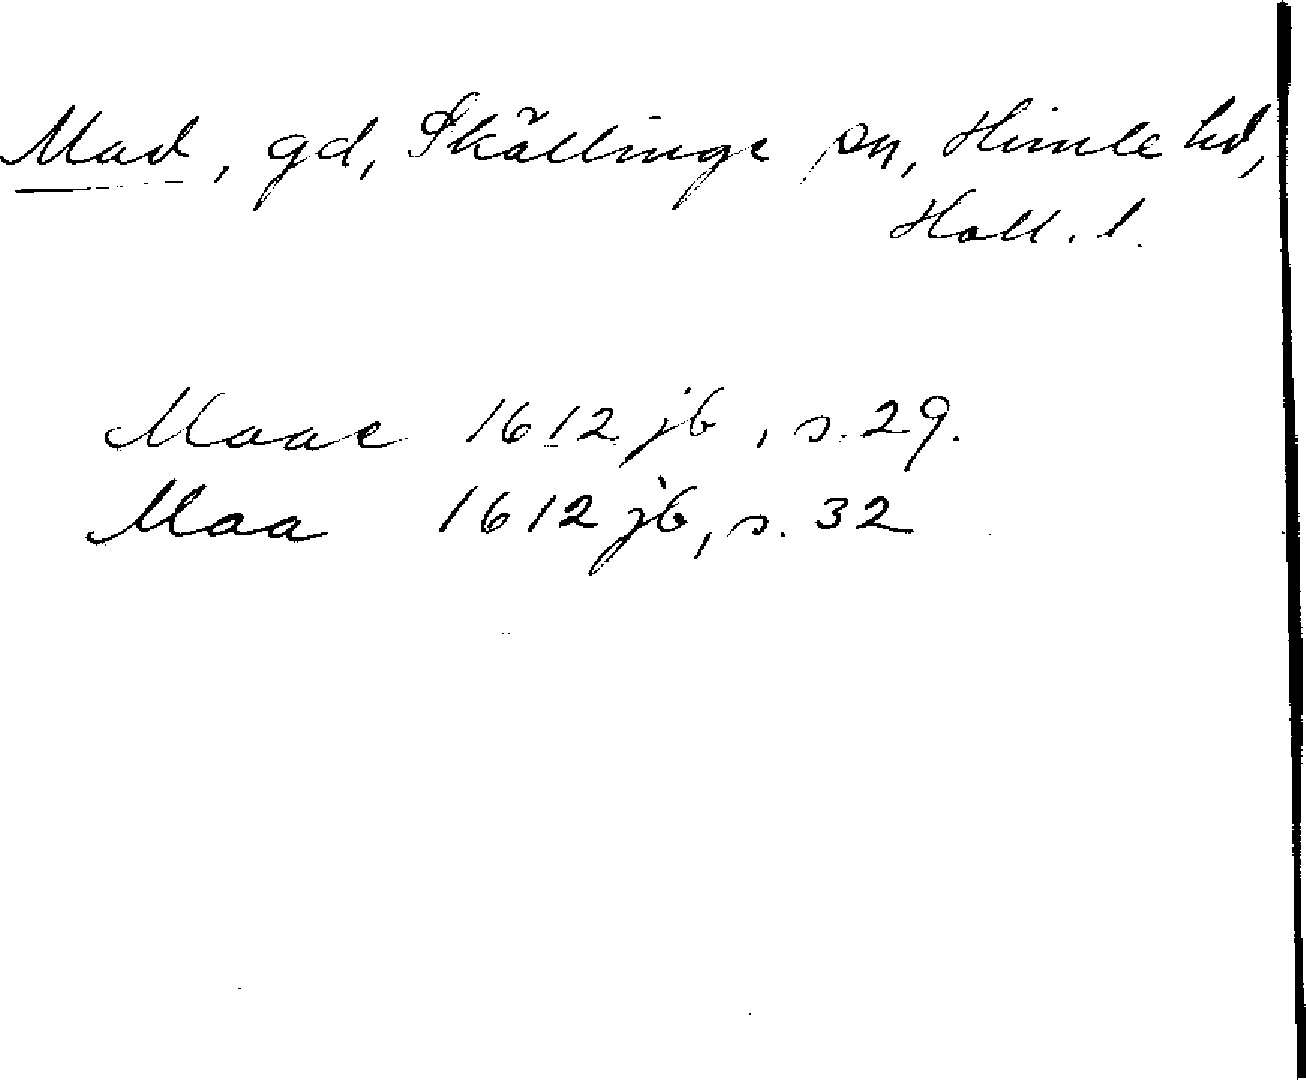 Mad, gd, Skällinge sn, Himle hd,
Hall. l.
Maae 1612 jb, s. 29.
Maa 1612 jb, s. 32